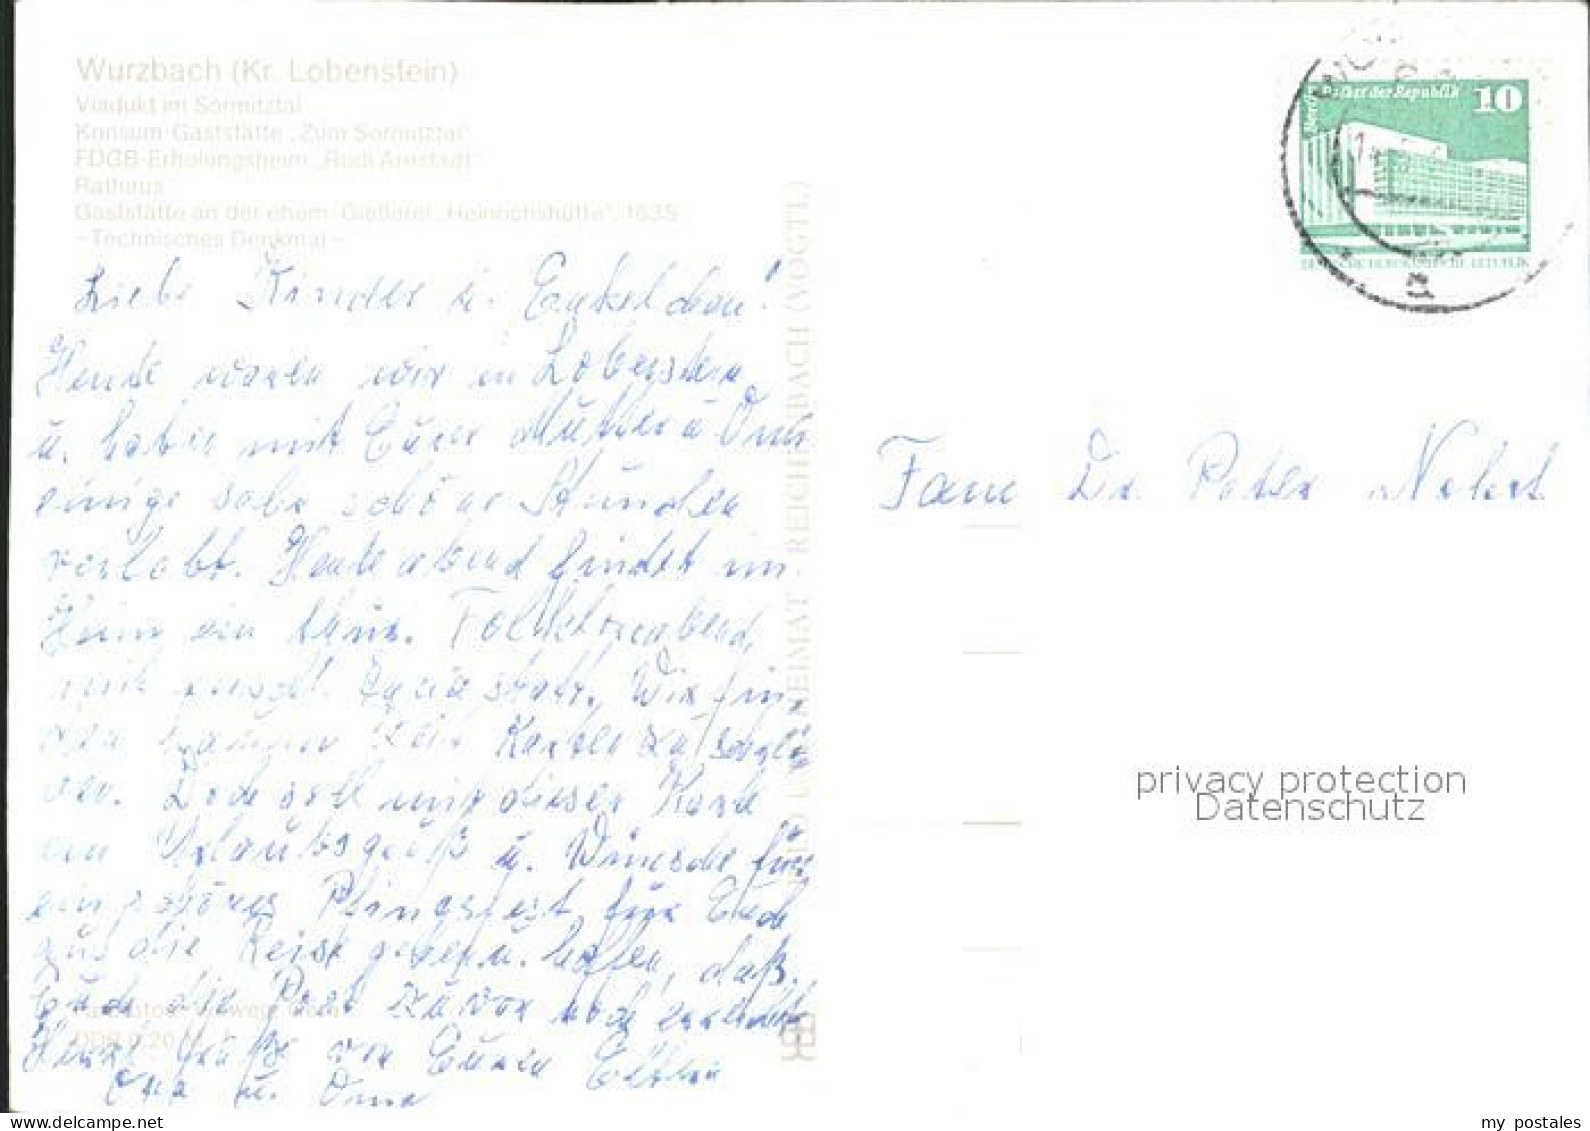 Wurzbach (Kr. Lobenstein)
Viadukt im Sormitztal
Konsum-Gaststätte „Zum Sormitztal“
FDGB-Erholungsheim „Rudi Arnstadt“
Rathaus
Gaststätte an der ehem. Gießerei „Heinrichshütte“, 1635
– Technisches Denkmal –
Berlin Palast der Republik 10
DEUTSCHE DEMOKRATISCHE REPUBLIK
Liebe Kinder u. Enkelchen!
Heute waren wir in Lobenstein
u. haben mit Eurer Mutter u. Omi
einige sehr schöne Stunden
verlebt. Heute abend findet im
Heim ein thür. Folkloreabend
mit statt. Wir
kaum Zeit Karten zu
Doch soll mit dieser Karte
ein Urlaubsgruß u. Wünsche für
ein schönes Pfingstfest für Euch
auf die Reise gehen u. hoffen, daß
Euch die Post zuvor noch erreicht.
Herzl. Grüße von Euren Eltern
Opa u. Oma
Fam. Dr. Peter
REICHENBACH (VOGTL)
privacy protection
Datenschutz
my postales
www.delcampe.net